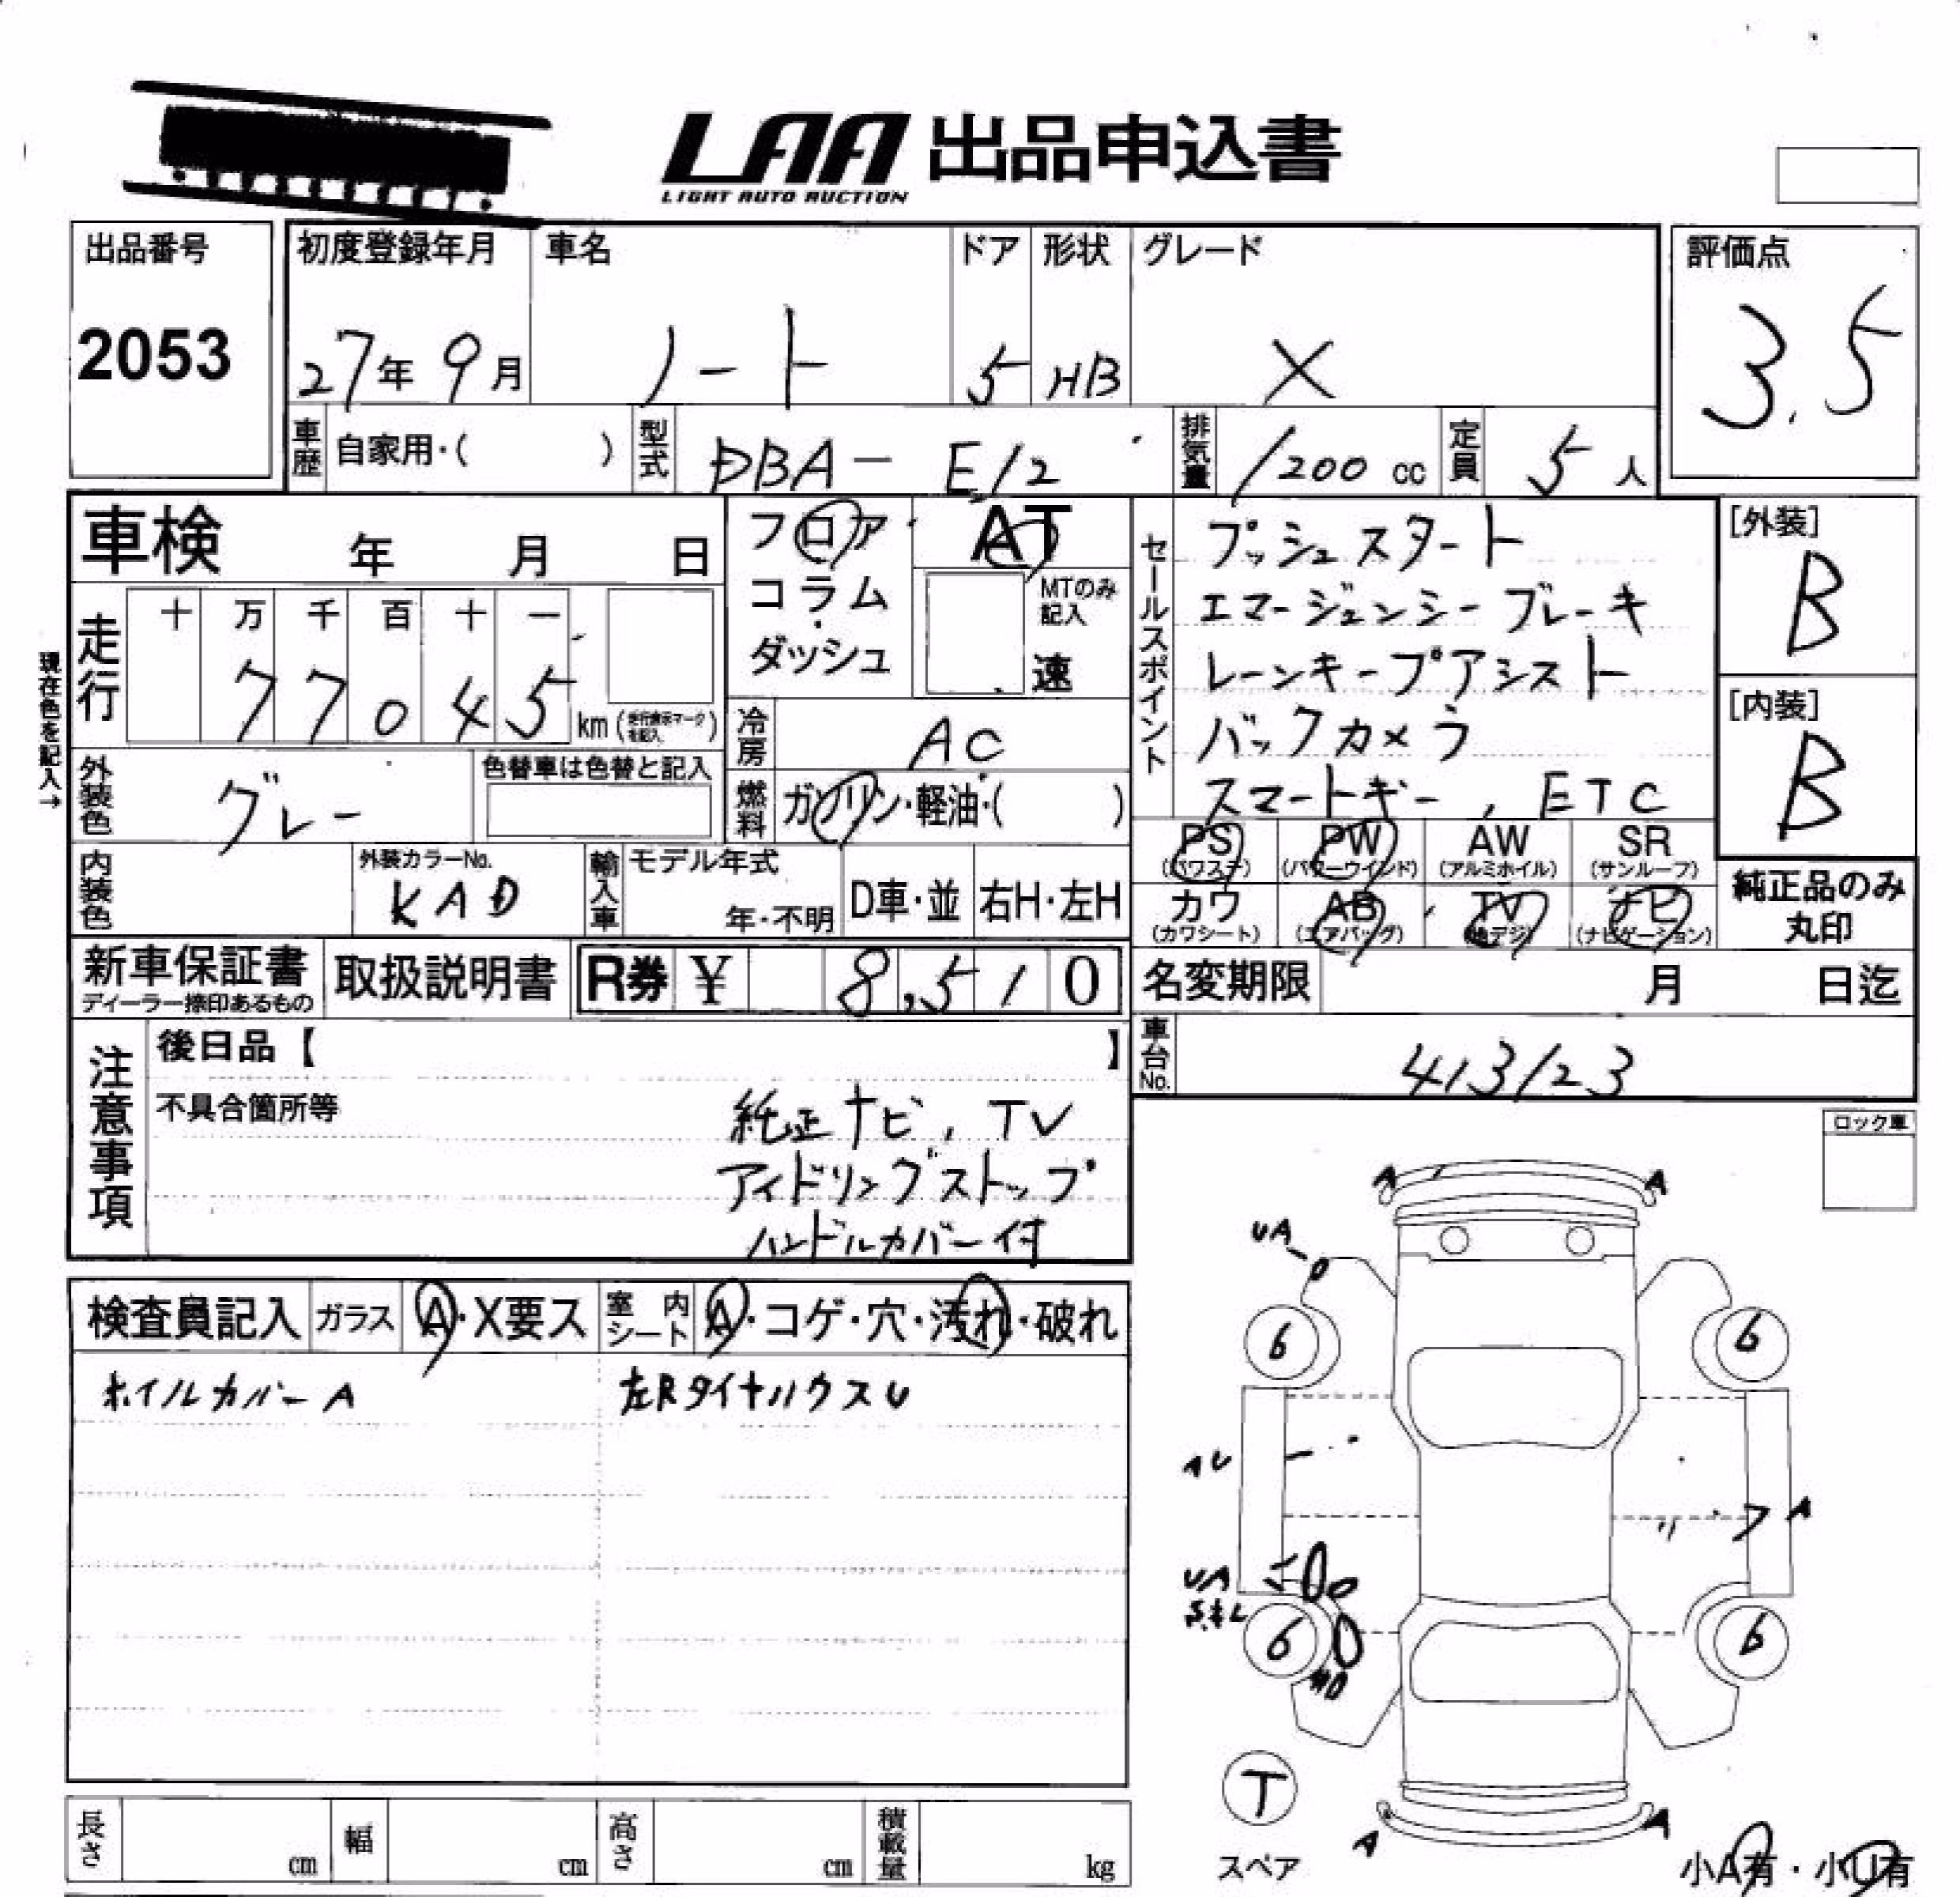 LAA 出品申込書
LIGHT AUTO AUCTION
出品番号
2053
初度登録年月
27年 9月
車名
ノート
ドア
5
形状
HB
グレード
X
評価点
3.5
車歴 自家用・( )
型式 DBA- E12
排気量 1200 cc
定員 5 人
車検 年 月 日
フロア・
コラム・
ダッシュ
AT
MTのみ記入
速
セールスポイント
プッシュスタート
エマージェンシーブレーキ
レーンキープアシスト
バックカメラ
スマートキー, ETC
[外装]
B
[内装]
B
現在色を記入→
走行
十 万 千 百 十 一
7 7 0 4 5
km (走行表示マークを記入)
冷房 AC
燃料 ガソリン・軽油・( )
外装色 グレー
色替車は色替と記入
内装色
外装カラーNo.
KAD
輸入車
モデル年式
年・不明
D車・並
右H・左H
PS (パワステ)
PW (パワーウインド)
AW (アルミホイル)
SR (サンルーフ)
カワ (カワシート)
AB (エアバッグ)
TV (地デジ)
ナビ (ナビゲーション)
純正品のみ
丸印
新車保証書
ディーラー捺印あるもの
取扱説明書
R券 ¥ 8,510
名変期限 月 日迄
車台No. 413123
注意事項
後日品【 】
不具合箇所等
純正ナビ, TV
アイドリングストップ
ハンドルカバー付
ロック車
検査員記入
ガラス A・X要ス
室内シート A・コゲ・穴・汚れ・破れ
ホイルカバーA
左RタイヤハウスU
A A
UA
6 6
AU
A
UA
6 6
T
スペア
A A
小A有・小U有
長さ cm
幅 cm
高さ cm
積載量 kg